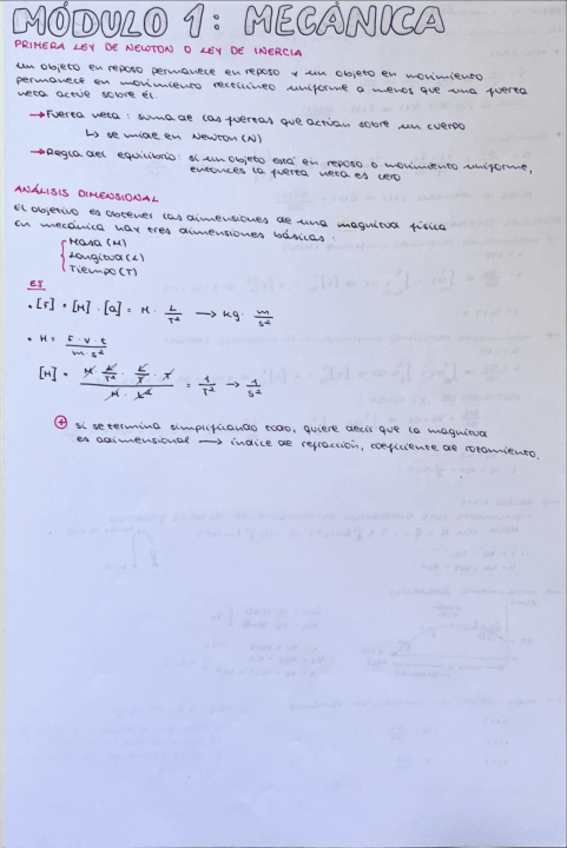 MÓDULO 1: MECÁNICA
PRIMERA LEY DE NEWTON O LEY DE INERCIA
un objeto en reposo permanece en reposo y un objeto en movimiento
permanece en movimiento rectilíneo uniforme a menos que una fuerza
neta actúe sobre él.
→ Fuerza neta: suma de las fuerzas que actúan sobre un cuerpo
↳ se mide en Newton (N)
→ Regla del equilibrio: si un objeto está en reposo o movimiento uniforme,
entonces la fuerza neta es cero
ANÁLISIS DIMENSIONAL
El objetivo es obtener las dimensiones de una magnitud física
En mecánica hay tres dimensiones básicas:
Masa (M)
Longitud (L)
Tiempo (T)
EJ
• [F] = [M] · [a] = M · L/T² → kg · m/s²
• H = F · v · t / m · s²
[H] = M · L/T² · L/T · T / M · L² = 1/T² → 1/s²
⊕ si se termina simplificando todo, quiere decir que la magnitud
es adimensional → índice de refracción, coeficiente de rozamiento.